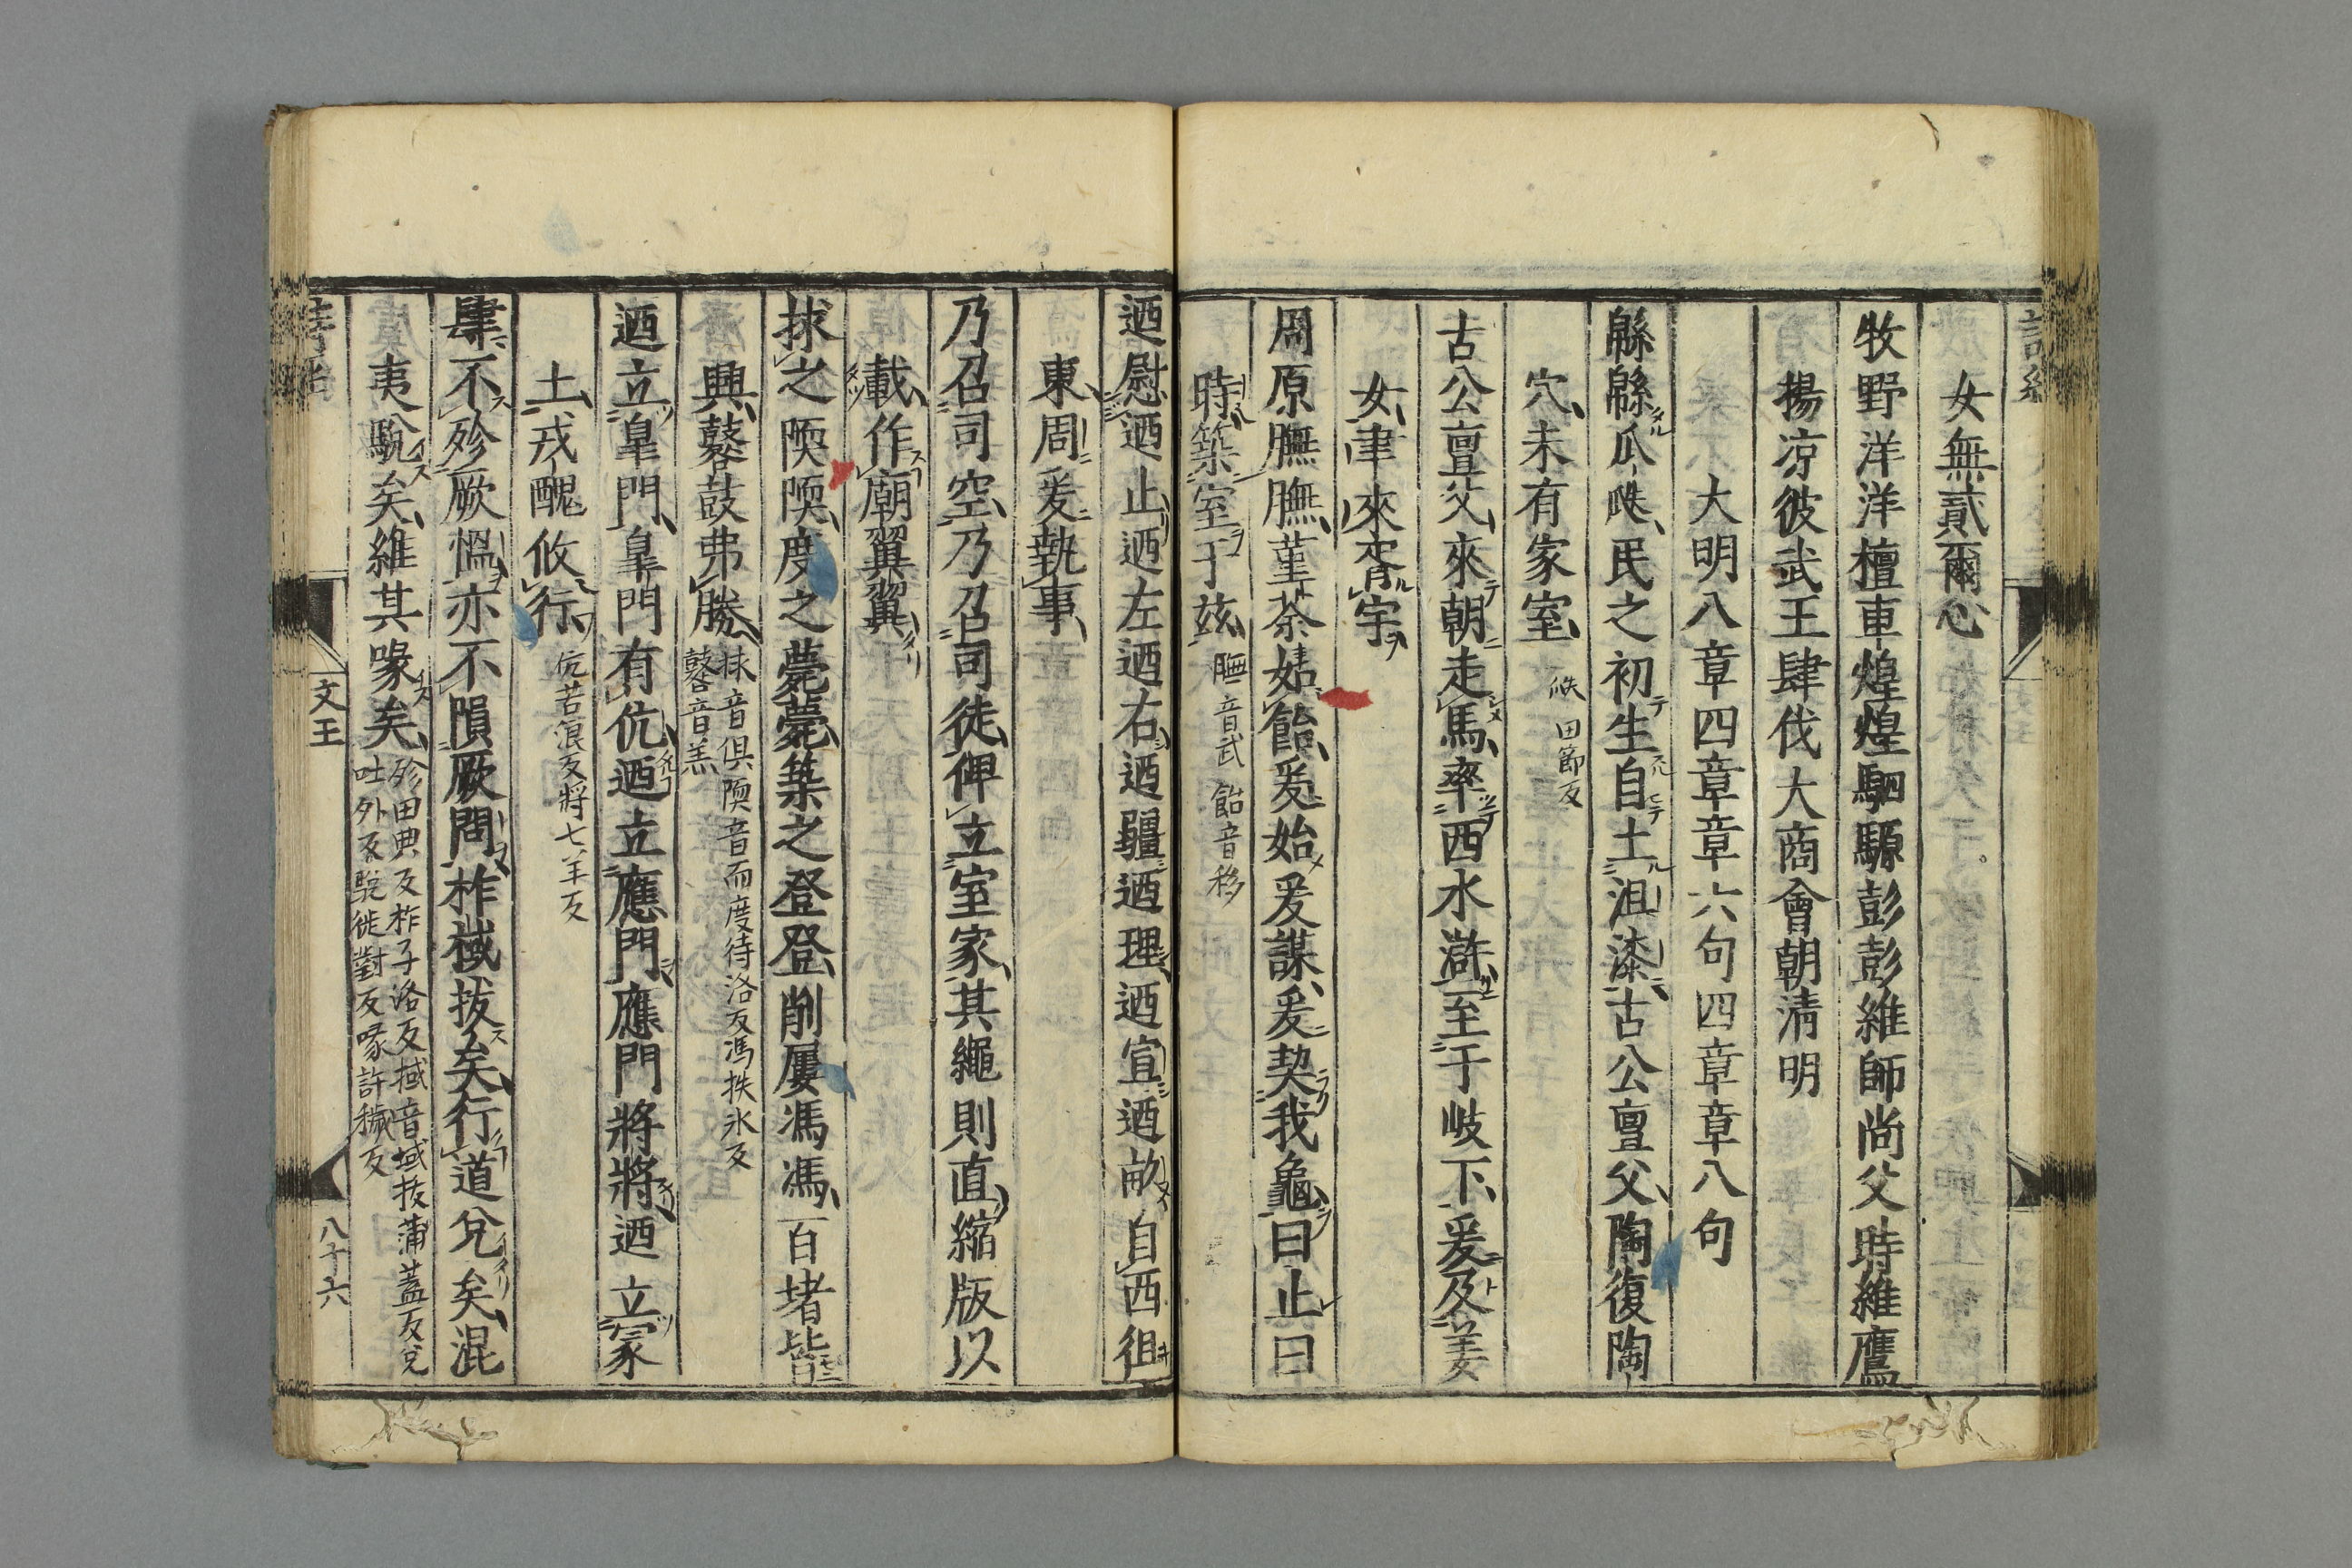 女無貳爾心
牧野洋洋檀車煌煌駟騵彭彭維師尚父時維鷹
揚涼彼武王肆伐大商會朝淸明
大明八章四章章六句四章章八句
緜緜瓜瓞民之初生自土沮漆古公亶父陶復陶
穴未有家室
瓞田節反
古公亶父來朝走馬率西水滸至于岐下爰及姜
女聿來胥宇
周原膴膴菫荼如飴爰始爰謀爰契我龜曰止曰
時築室于玆
膴音武飴音移
迺慰迺止迺左迺右迺疆迺理迺宣迺畝自西徂
東周爰執事
乃召司空乃召司徒俾立室家其繩則直縮版以
載作廟翼翼
捄之陾陾度之薨薨築之登登削屢馮馮百堵皆
興鼛鼓弗勝
捄音俱陾音而度待洛反馮扶氷反
鼛音羔
迺立皐門皐門有伉迺立應門應門將將迺立冢
土戎醜攸行
伉苦浪反將七羊反
肆不殄厥慍亦不隕厥問柞棫拔矣行道兌矣混
夷駾矣維其喙矣
殄田典反柞子洛反棫音域拔蒲蓋反兌
吐外反駾徙對反喙許穢反
文王
八十六